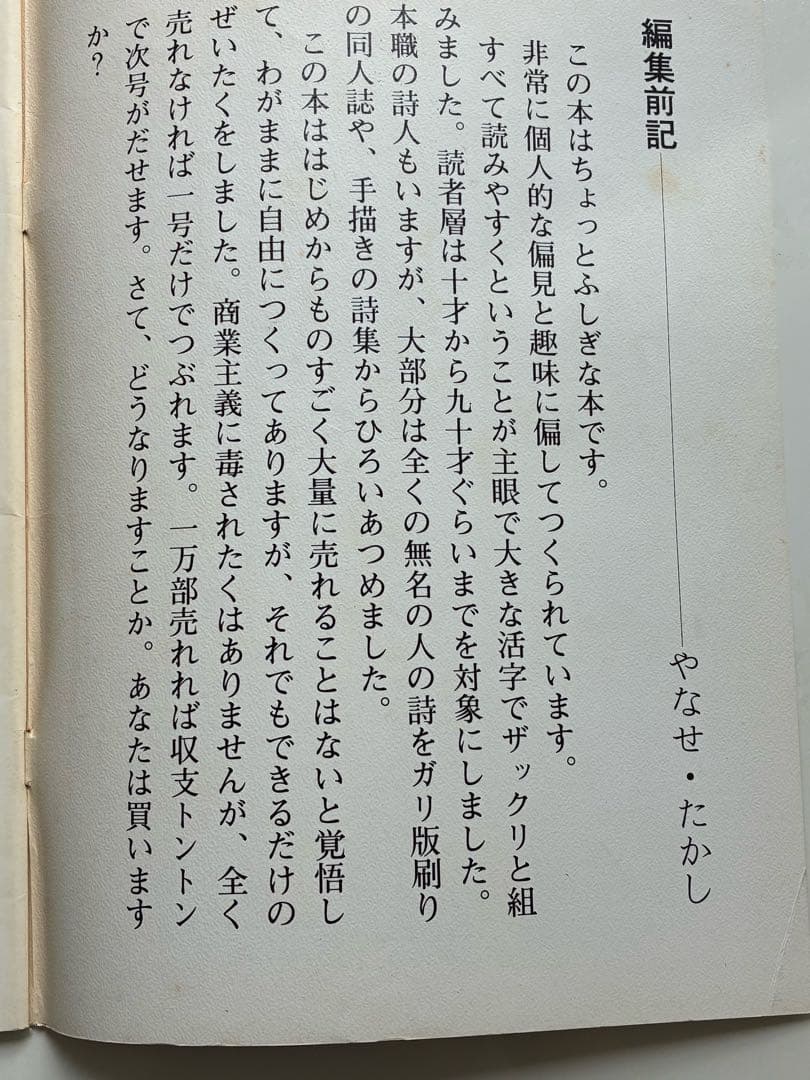 編集前記――やなせ・たかし
この本はちょっとふしぎな本です。
非常に個人的な偏見と趣味に偏してつくられています。
すべて読みやすくということが主眼で大きな活字でザックリと組
みました。読者層は十才から九十才ぐらいまでを対象にしました。
本職の詩人もいますが、大部分は全くの無名の人の詩をガリ版刷り
の同人誌や、手描きの詩集からひろいあつめました。
この本ははじめからものすごく大量に売れることはないと覚悟し
て、わがままに自由につくってありますが、それでもできるだけの
ぜいたくをしました。商業主義に毒されたくはありませんが、全く
売れなければ一号だけでつぶれます。一万部売れれば収支トントン
で次号がだせます。さて、どうなりますことか。あなたは買います
か？